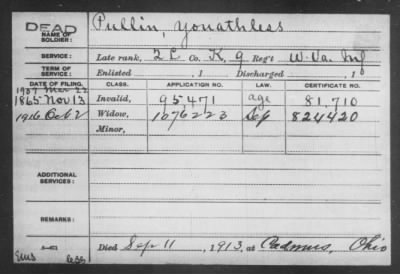 DEAD
NAME OF SOLDIER: Pullin, Yonathless
SERVICE: Late rank, 2 L Co. K, 9 Reg't W. Va. Inf
TERM OF SERVICE: Enlisted , 1 Discharged , 1
DATE OF FILING. CLASS. APPLICATION NO. LAW. CERTIFICATE NO.
1907 Mar 22
1865 Nov 13 Invalid, 95,471 age 81,710
1916 Oct 2 Widow, 1076223 824420
Minor,
ADDITIONAL SERVICES:
REMARKS:
Died Sep 11, 1913, at Cadmus, Ohio